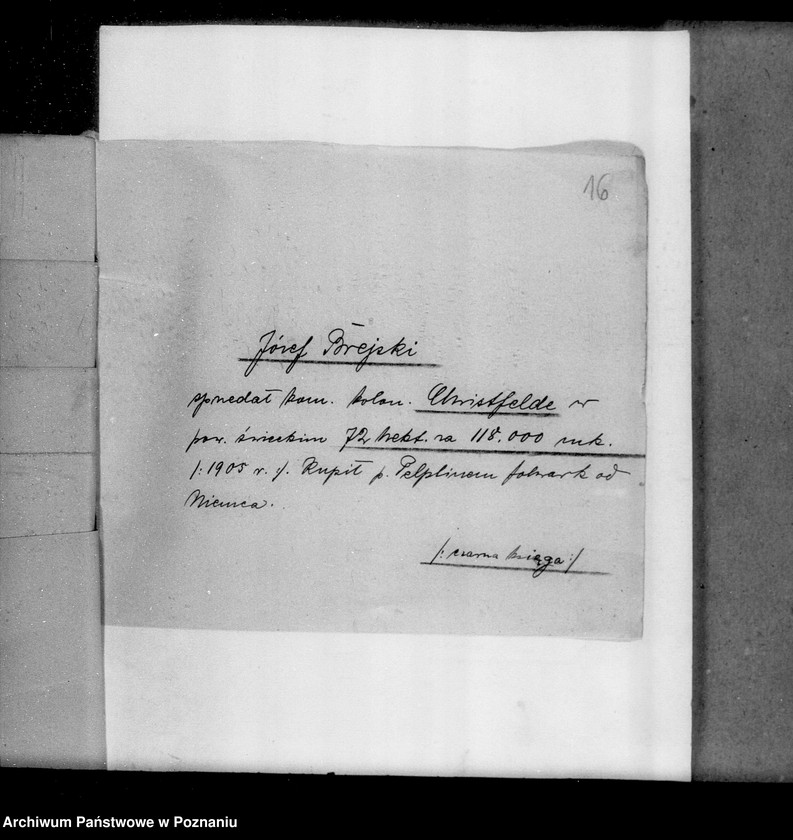 16
Józef Brejski
sprzedał kom. kolon. Christfelde w
pow. świeckim 72 hekt. za 118.000 mk.
/: 1905 r. :/. Kupił p. Pelplinem folwark od
Niemca.
/: czarna księga :/
Archiwum Państwowe w Poznaniu